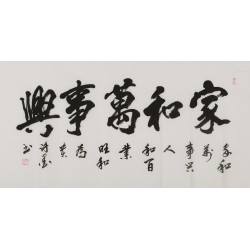 家和萬事興
家和
萬
事兴
人
和百
業
旺和
为
貴
书